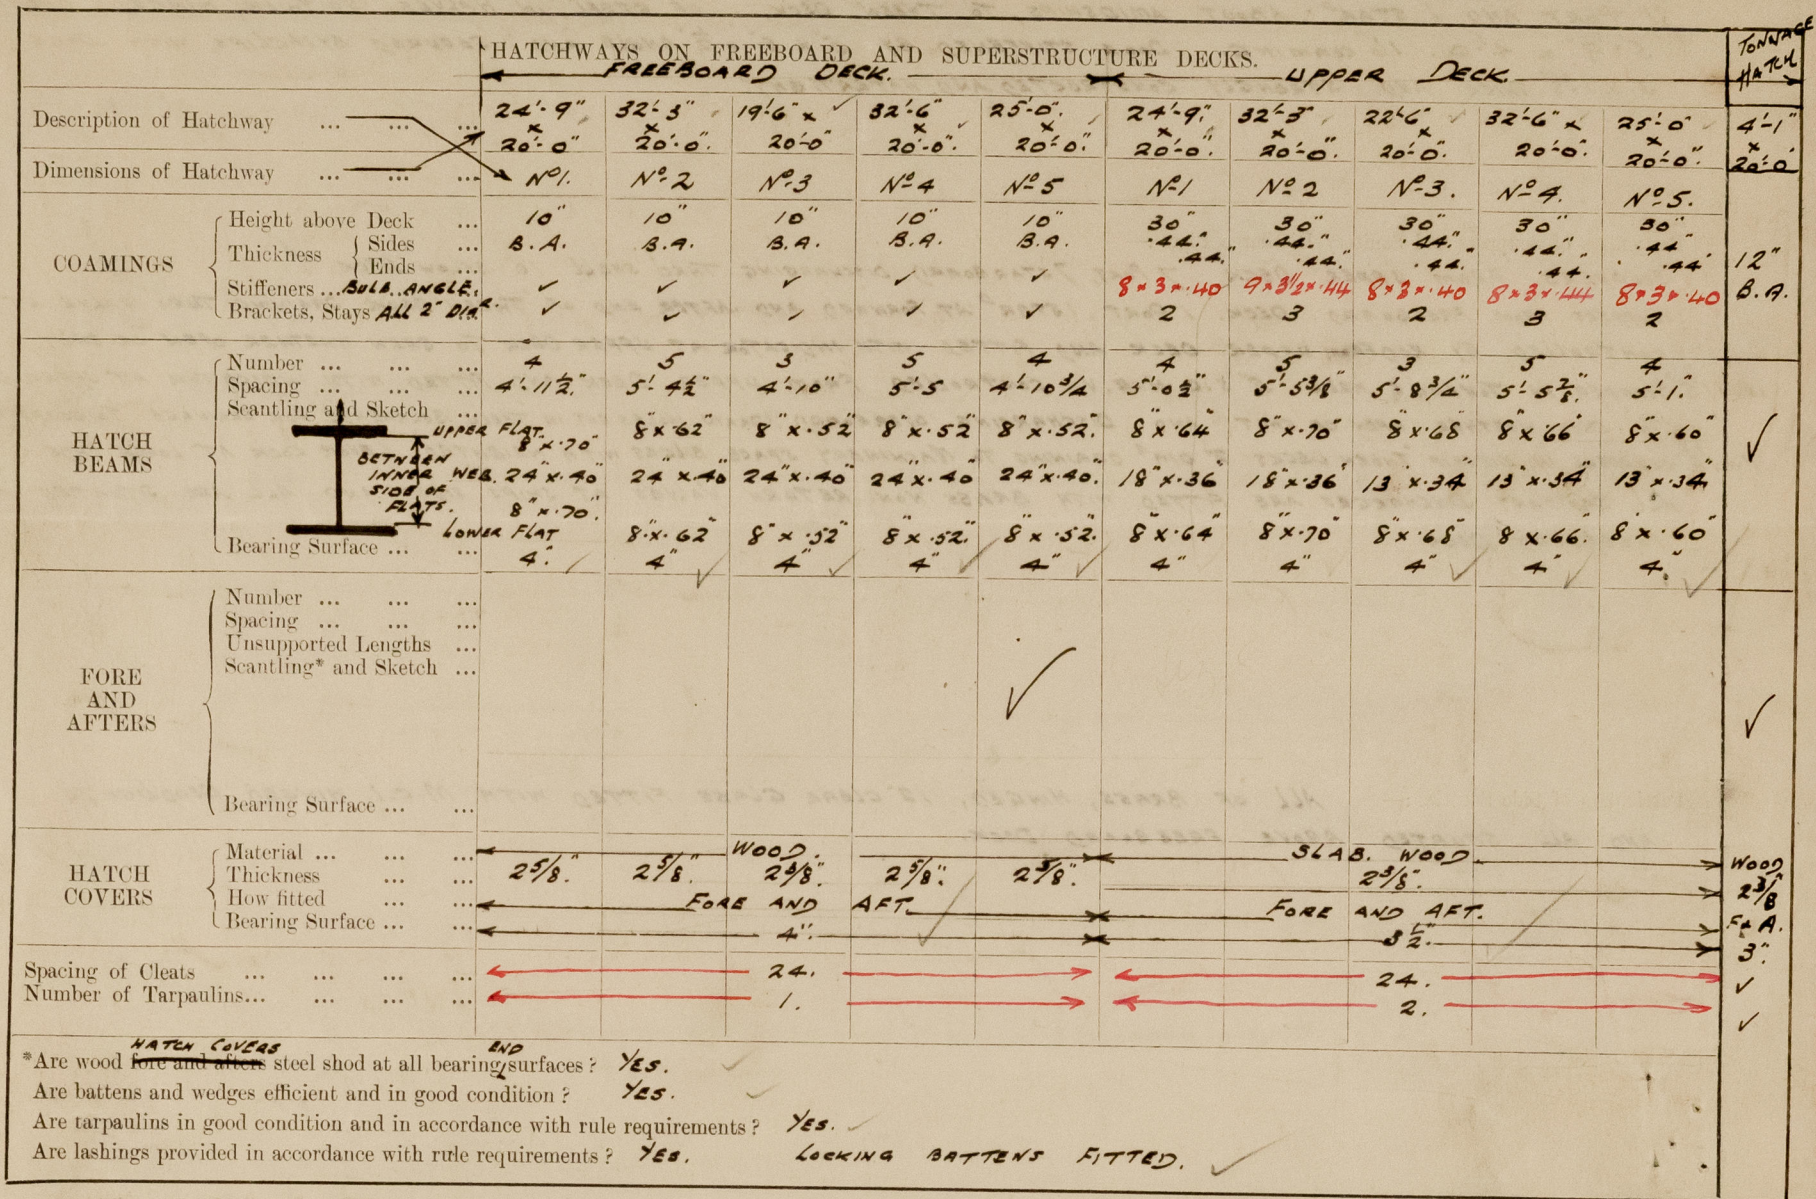 HATCHWAYS ON FREEBOARD AND SUPERSTRUCTURE DECKS.
TONNAGE HATCH
FREEBOARD DECK. UPPER DECK
Description of Hatchway ... ... ... 24'-9" x 20'-0" 32'-3" x 20'-0" 19'-6" x 20'-0" 32'-6" x 20'-0" 25'-0" x 20'-0" 24'-9" x 20'-0" 32'-3" x 20'-0" 22'-6" x 20'-0" 32'-6" x 20'-0" 25'-0" x 20'-0" 4'-1" x 20'-0"
Dimensions of Hatchway ... ... ... No 1. No 2 No 3 No 4 No 5 No 1 No 2 No 3. No 4. No 5.
COAMINGS
Height above Deck ... 10" 10" 10" 10" 10" 30" 30" 30" 30" 30"
Thickness
Sides ... B.A. B.A. B.A. B.A. B.A. .44" .44" .44" .44" .44" 12"
Ends ... .44" .44" .44" .44" .44"
Stiffeners ... BULB ANGLE. ✓ ✓ ✓ ✓ ✓ 8 x 3 x .40 9 x 3 1/2 x .44 8 x 3 x .40 8 x 3 x .44 8 x 3 x .40 B.A.
Brackets, Stays ALL 2" DIA. ✓ ✓ ✓ ✓ ✓ 2 3 2 3 2
HATCH BEAMS
Number ... ... ... 4 5 3 5 4 4 5 3 5 4
Spacing ... ... ... 4'-11 1/2" 5'-4 1/2" 4'-10" 5'-5 4'-10 3/4 5'-0 1/2" 5'-5 3/8" 5'-8 3/4" 5'-5 7/8" 5'-1"
Scantling and Sketch ...
UPPER FLAT 8" x .70" 8" x .62" 8" x .52" 8" x .52" 8" x .52" 8" x .64" 8" x .70" 8" x .68" 8" x .66" 8" x .60" ✓
BETWEEN INNER SIDE OF FLATS.
WEB. 24" x .40" 24" x .40" 24" x .40" 24" x .40" 24" x .40" 18" x .36" 18" x .36" 13" x .34" 13" x .34" 13" x .34"
LOWER FLAT 8" x .70" 8" x .62" 8" x .52" 8" x .52" 8" x .52" 8" x .64" 8" x .70" 8" x .68" 8" x .66" 8" x .60"
Bearing Surface ... ... 4" 4" 4" 4" 4" 4" 4" 4" 4" 4"
FORE AND AFTERS
Number ... ... ...
Spacing ... ... ...
Unsupported Lengths ...
Scantling* and Sketch ... ✓ ✓
Bearing Surface ... ...
HATCH COVERS
Material ... ... ... WOOD. SLAB. WOOD WOOD
Thickness ... ... 2 5/8" 2 5/8" 2 5/8" 2 5/8" 2 5/8" 2 3/8" 2 3/8
How fitted ... ... FORE AND AFT. FORE AND AFT. F & A.
Bearing Surface ... ... 4" 3 1/2" 3"
Spacing of Cleats ... ... ... ... 24. 24. ✓
Number of Tarpaulins... ... ... ... 1. 2. ✓
HATCH COVERS END
*Are wood fore and afters steel shod at all bearing surfaces? YES.
Are battens and wedges efficient and in good condition? YES.
Are tarpaulins in good condition and in accordance with rule requirements? YES.
Are lashings provided in accordance with rule requirements? YES. LOCKING BATTENS FITTED.